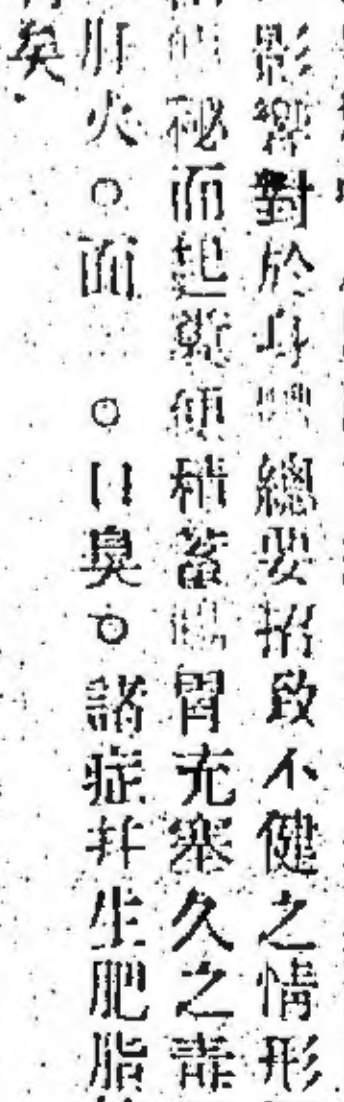 影響對於身體總要招致不健之情形
秘而起糞便積蓄腸胃充塞久之毒
肝火○面○口臭○諸症并生肥脂
矣